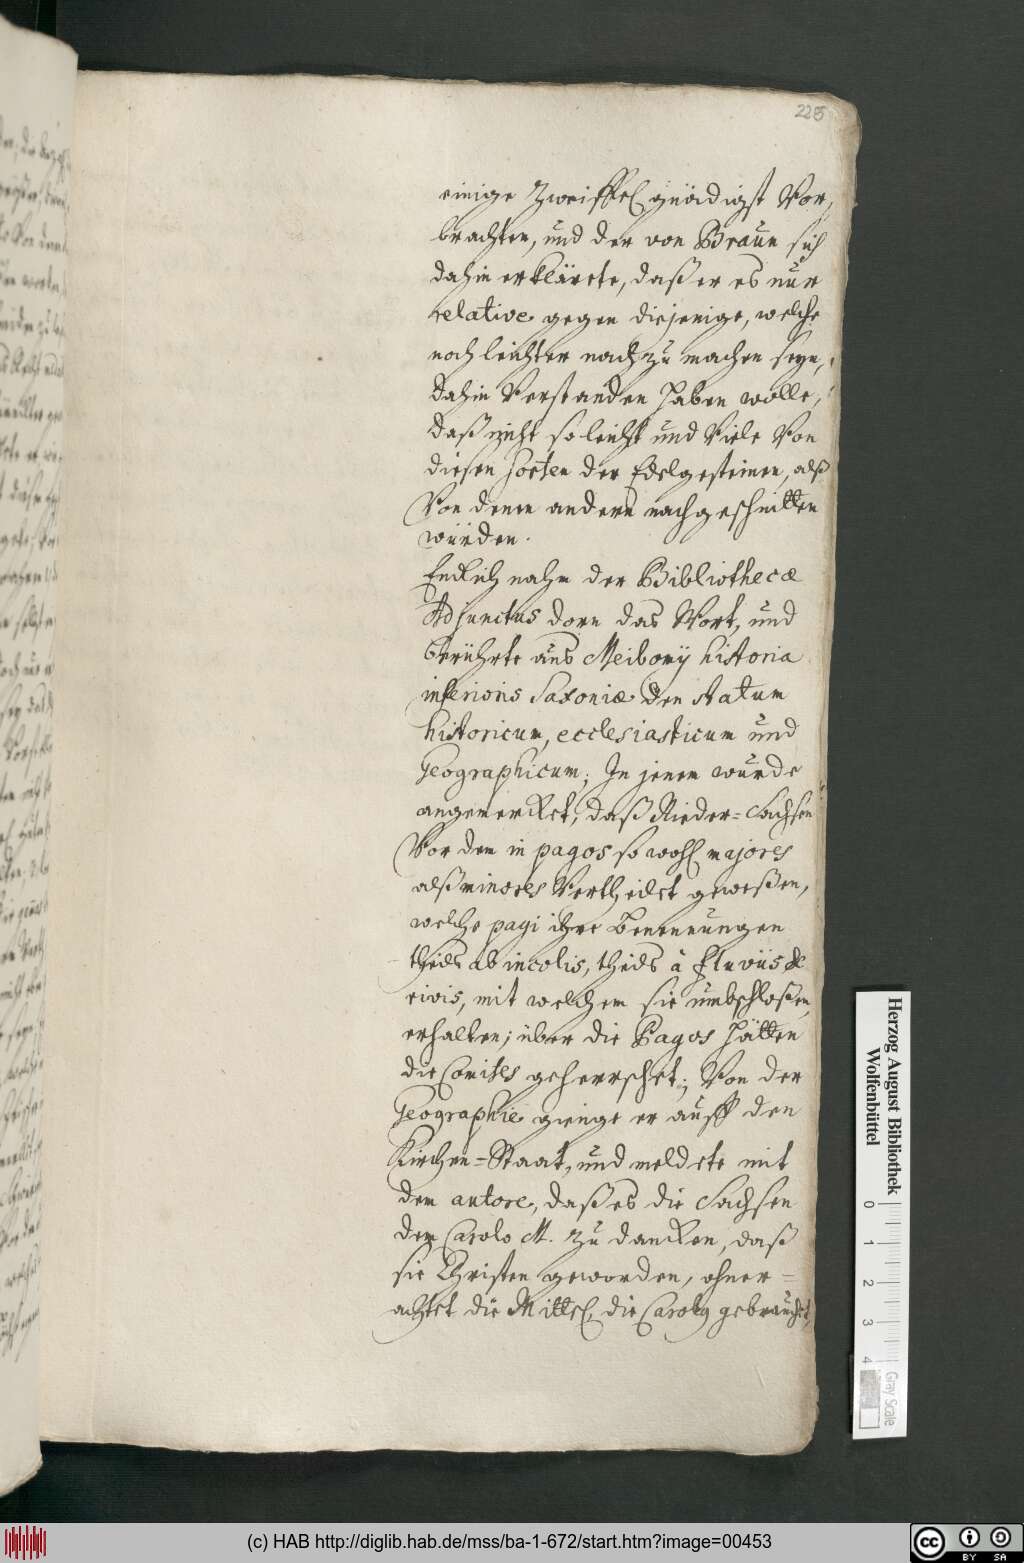 228
einige Zweiffel gnädigst Vor-
brachten, und der von Braun sich
dahin erklärete, daß er es nur
relative gegen diejenige, welche
noch leichter nach zu machen seyn,
dahin Verstanden haben wolle,
daß nicht so leicht und Viele Von
diesen sorten der Edelgesteinen, alß
Von denen andern nachgeschnitten
würden.
Endlich nahm der Bibliothecæ
Adjunctus dorn das Wort, und
berührte aus Meibomij historia
inferioris Saxoniæ den statum
historicum, ecclesiasticum und
Geographicum; In jenem wurde
angemercket, daß Nieder-Sachsen
Vor dem in pagos so wohl majores
alß minores Vertheilet geweßen,
welche pagi ihre Benennungen
theils ab incolis, theils à fluviis &
rivis, mit welchem sie umbschloßen,
erhalten; über die Pagos hätten
die Comites geherrschet; Von der
Geographie gienge er auff den
Kirchen-Staat, und meldete mit
dem autore, daß es die Sachsen
dem Carolo M. zu dancken, daß
sie Christen geworden, ohner-
achtet die Mittel, die Carolus gebrauchet,
Herzog August Bibliothek
Wolfenbüttel
0 1 2 3 4
Gray Scale
(c) HAB http://diglib.hab.de/mss/ba-1-672/start.htm?image=00453
cc BY SA